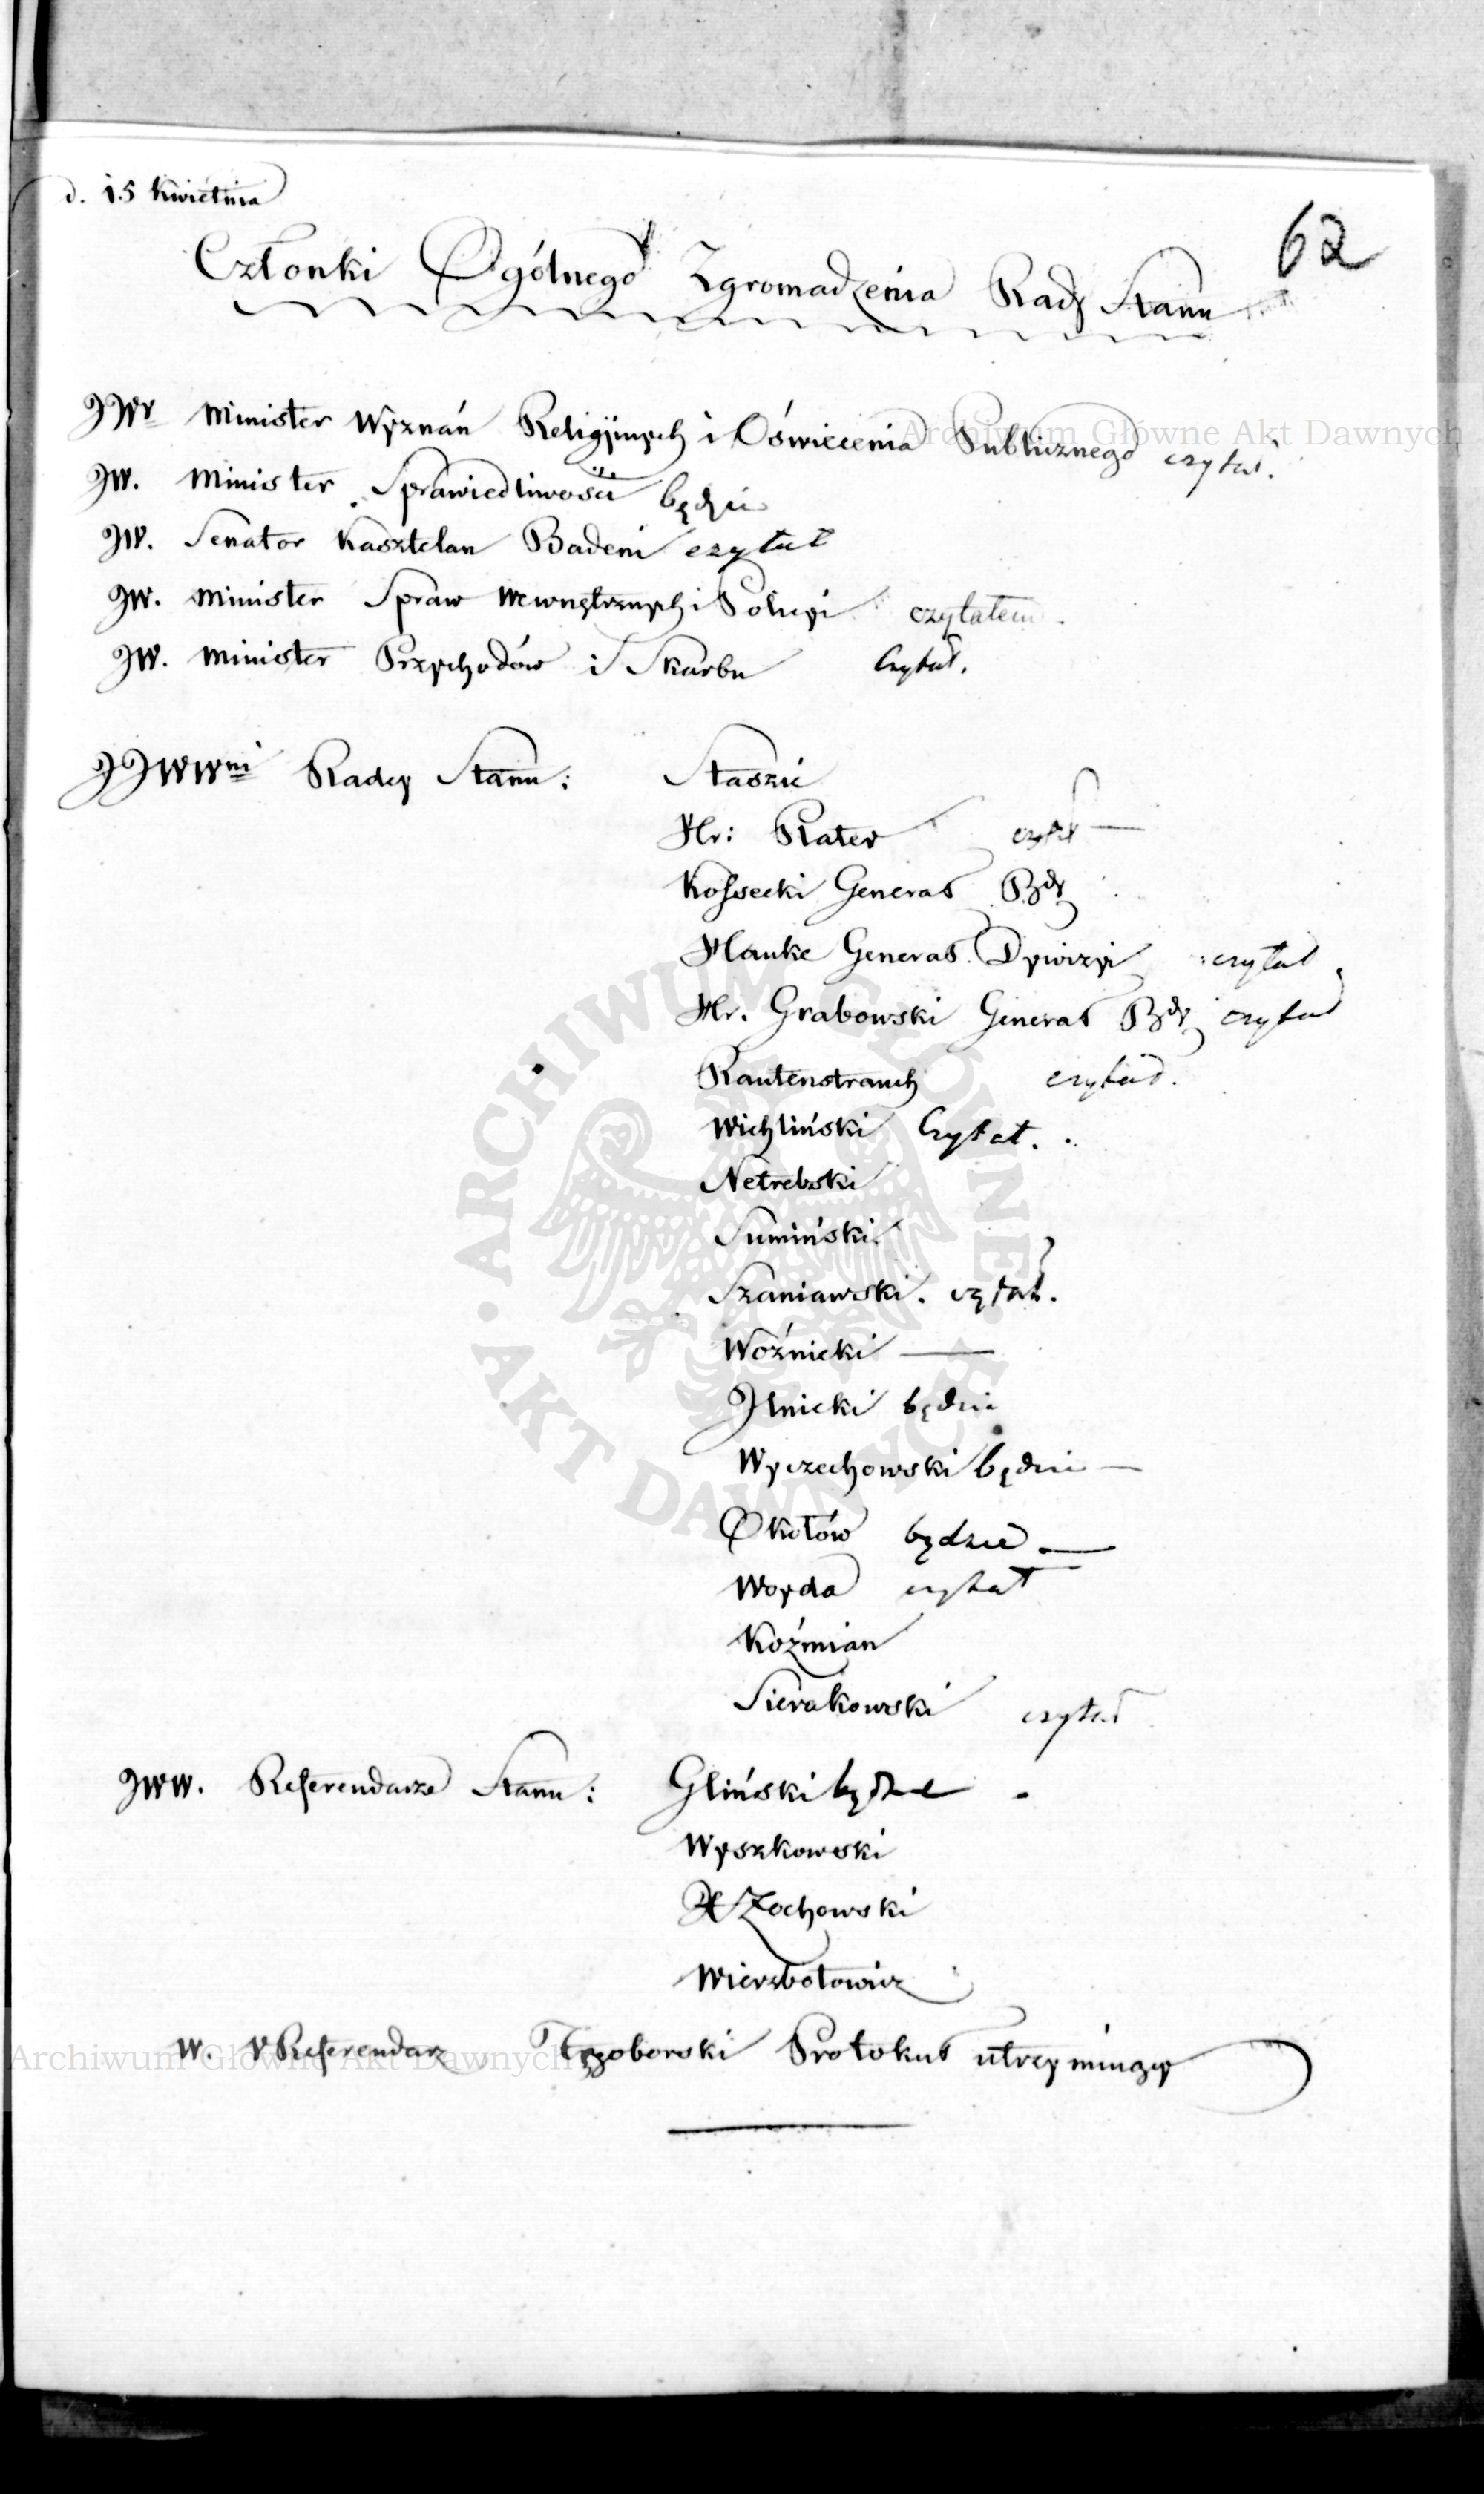 d. 15 Kwietnia
62
Członki Ogólnego Zgromadzenia Rady Stanu
JWr Minister Wyznań Religijnych i Oświecenia Publicznego czytał.
JW. Minister Sprawiedliwości będzie
JW. Senator Kasztelan Badeni czytał
JW. Minister Spraw Wewnętrznych i Policyi czytałem.
JW. Minister Przychodów i Skarbu Czytał.
JJWWni Radcy Stanu: Staszic
Hr: Plater czytał —
Kossecki Generał Bdy
Hauke Generał Dywizyi czytał
Hr. Grabowski Generał Bdy czytał
Rautenstrauch czytał.
Wichliński Czytał.
Netrebski
Sumiński
Szaniawski. czytał.
Woźnicki —
Ilnicki będzie
Wyczechowski będzie —
Okołów będzie —
Woyda czytał
Koźmian
Sierakowski czytał
JWW. Referendarze Stanu: Gliński będzie
Wyszkowski
X Żochowski
Wierzbołowicz
W. V Referendarz Tęgoborski Protokuł utrzymuiący
Archiwum Główne Akt Dawnych
Archiwum Główne Akt Dawnych
ARCHIWUM GŁÓWNE • AKT DAWNYCH •